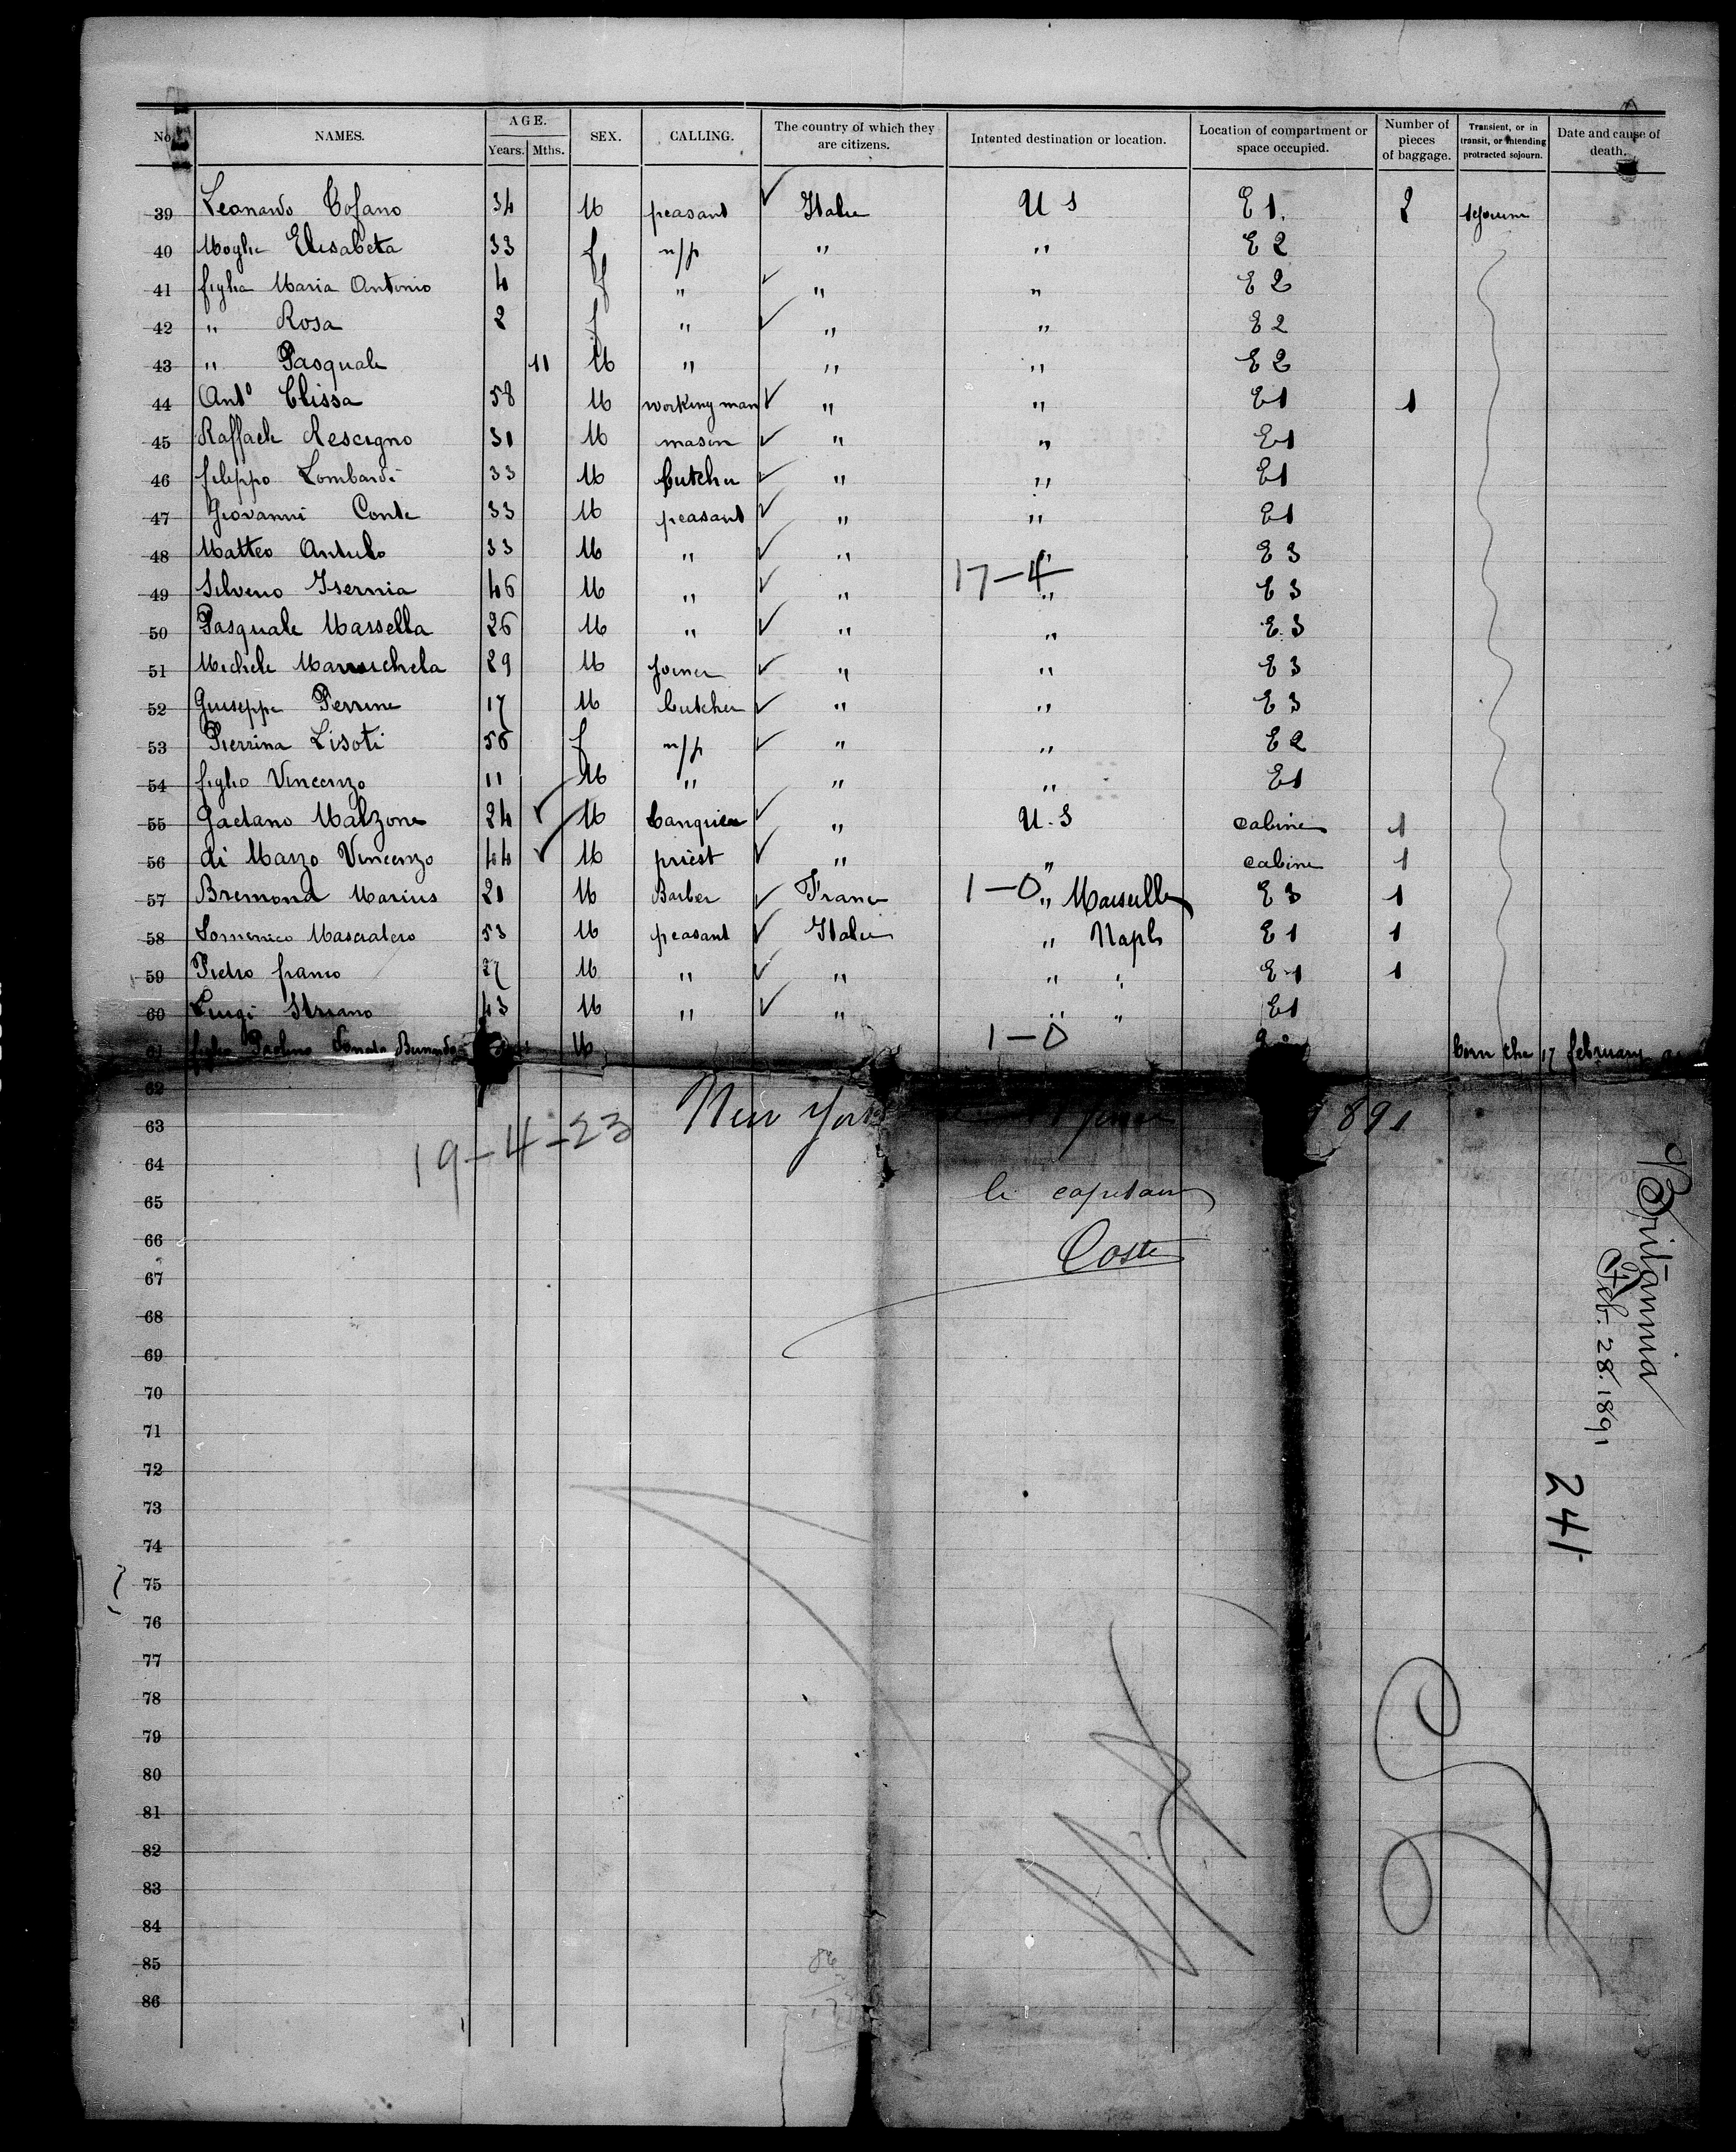 No. NAMES. AGE. Years. Mths. SEX. CALLING. The country of which they are citizens. Intented destination or location. Location of compartment or space occupied. Number of pieces of baggage. Transient, or in transit, or intending protracted sojourn. Date and cause of death.
39 Leonardo Cofano 34 M peasant ✓ Italie U S E 1. 2
40 Moglie Elisabeta 33 f n/p " " E 2
41 figlia Maria Antonio 4 f " ✓ " " E 2
42 " Rosa 2 f " ✓ " " E 2
43 " Pasquale 11 M " " " E 2
44 Anto Clissa 58 M working man ✓ " " E1 1
45 Raffaele Rescigno 31 M mason ✓ " " E1
46 filippo Lombardi 33 M butcher ✓ " " E1
47 Giovanni Conte 33 M peasant ✓ " " E1
48 Matteo 33 M " ✓ " " E 3
17-4
49 Silverio Isernia 46 M " ✓ " " E 3
50 Pasquale Massella 26 M " ✓ " " E. 3
51 Michele 29 M joiner ✓ " " E 3
52 Giuseppe Perrine 17 M butcher ✓ " " E 3
53 Pierrina Lisoti 56 f n/p ✓ " " E 2
54 figlio Vincenzo 11 M " " " E1
55 Gaetano Malzone 24 ✓ M banquier ✓ " U.S cabine 1
56 di Marzo Vincenzo 44 ✓ M priest ✓ " " cabine 1
57 Bremond Marius 21 M Barber ✓ France 1-0 " Marseille E 3 1
58 Domenico 53 M peasant ✓ Italie " Naples E 1 1
59 Pietro franco 27 M " ✓ " " " E 1 1
60 Luigi Striano 43 M " ✓ " " " E1
61 figlio Paolino Donato M 1-0 born the 17 february
62
63 New York 1891
19-4-23
64
65 le capitaine
66 Coste
67
68
69
70
71
72
73
74
75
76
77
78
79
80
81
82
83
84
85
86
Britannia
Feb. 28. 1891
241